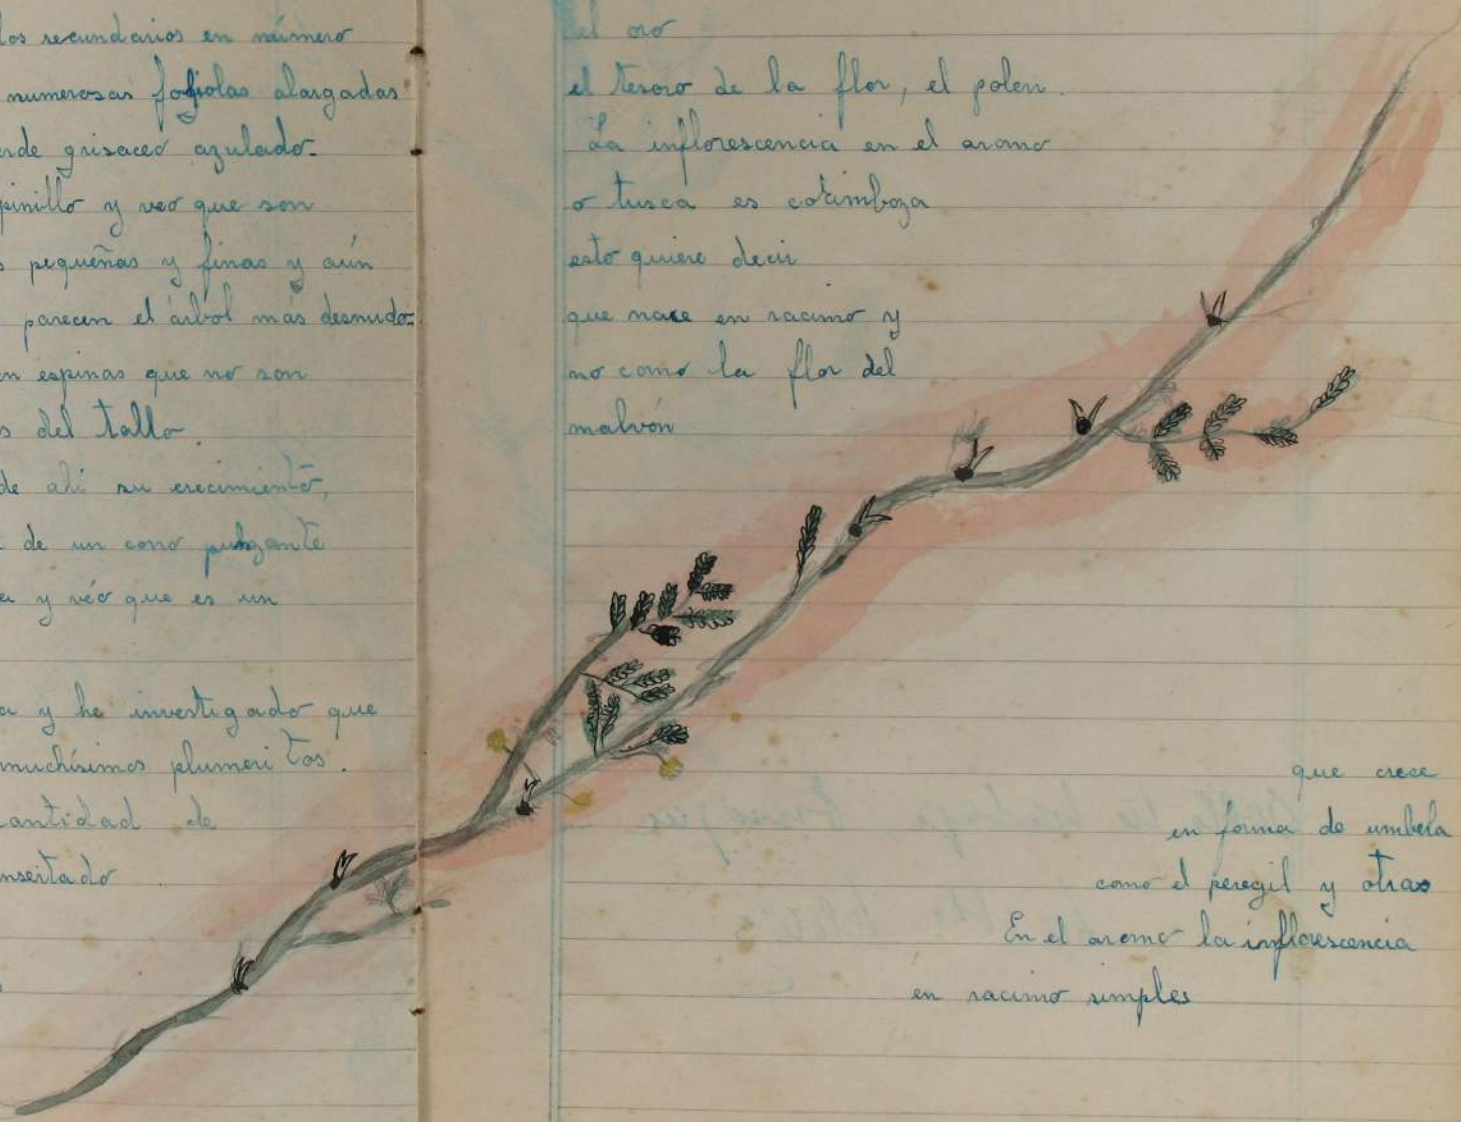 los secundarios en número
numerosas fofiolas alargadas
rde grisaceo azulado.
pinillo y veo que son
s pequeñas y finas y aún
parecen el árbol más desnudo.
n espinas que no son
s del tallo.
de ahi su crecimiento,
de un cono punzante
a y véo que es un
a y he investigado que
muchísimos plumeritos.
cantidad de
nsertado
el oro
el tesoro de la flor, el polen.
La inflorescencia en el aromo
o tusca es corimboza
esto quiere decir
que nace en racimo y
no como la flor del
malvón
que crece
en forma de umbela
como el peregil y otras
En el aromo la inflorescencia
en racimo simples